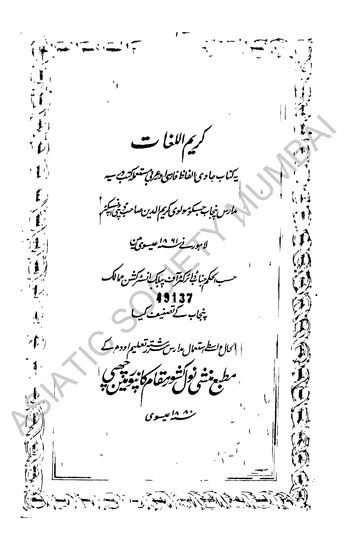 کریم اللغات
یہ کتاب حاوی الفاظ فارسی و عربی مستعملہ کتب درسیہ
مدارس پنجاب جسکو مولوی کریم الدین صاحب ڈپٹی انسپکٹر
لاہور نے ۱۸۶۱ عیسوی مین
حسب الحکم جناب ڈائرکٹر آف پبلک انسٹرکشن ممالک
49137
پنجاب کے تصنیف کیا
الحال واسطے استعمال مدارس سررشتہ تعلیم اودہ کے
مطبع منشی نول کشور مقام کانپور مین چھپی
۱۸۸۰ عیسوی
ASIATIC SOCIETY MUMBAI